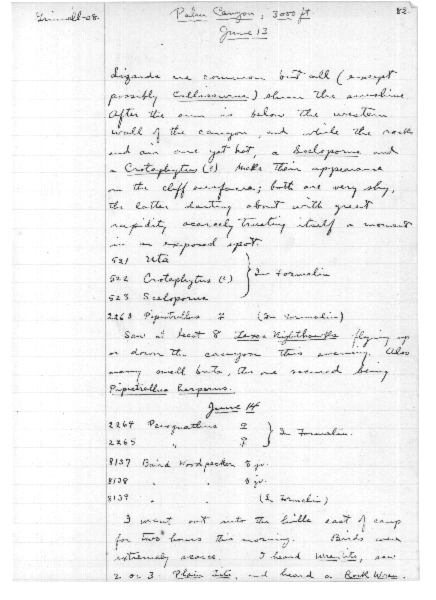 Grinnell-08. Palm Canyon, 3000 ft 82
June 13
Lizards are common but all (except
possibly Callisaurus) shun the sunshine
After the sun is below the western
wall of the canyon, and while the rocks
and air are yet hot, a Sceloporus and
a Crotaphytus (?) make their appearance
on the cliff surfaces; both are very shy,
the latter darting about with great
rapidity scarcely trusting itself a moment
in an exposed spot.
521 Uta
522 Crotaphytus (?) } In formalin
523 Sceloporus
2263 Pipistrellus ♀ (In formalin)
Saw at least 8 Texas Nighthawks flying up
or down the canyon this evening. Also
many small bats, the one secured being
Pipistrellus hesperus.
June 14
2264 Perognathus ♀
2265 " ♀ } In Formalin.
8137 Baird Woodpecker ♂ jv.
8138 " " ♂ jv.
8139 " " (In formalin)
I went out into the hills east of camp
for two hours this morning. Birds were
extremely scarce. I heard Wren-tits, saw
2 or 3 Plain tits, and heard a Rock Wren.